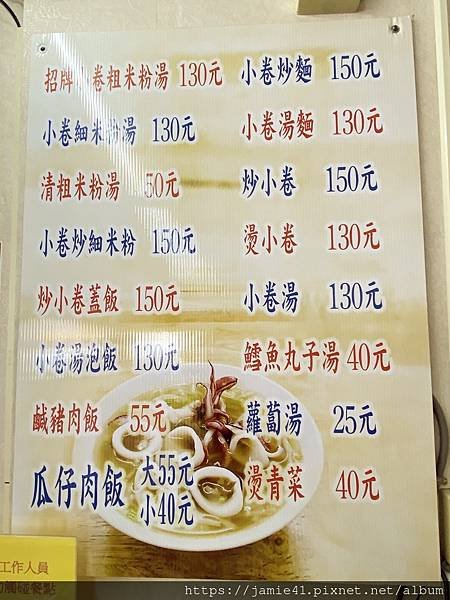 招牌小卷粗米粉湯 130元
小卷細米粉湯 130元
清粗米粉湯 50元
小卷炒細米粉 150元
炒小卷蓋飯 150元
小卷湯泡飯 130元
鹹豬肉飯 55元
瓜仔肉飯 大55元
小40元
小卷炒麵 150元
小卷湯麵 130元
炒小卷 150元
燙小卷 130元
小卷湯 130元
鱈魚丸子湯 40元
蘿蔔湯 25元
燙青菜 40元
工作人員
觸碰餐點
https://jamie41.pixnet.net/album